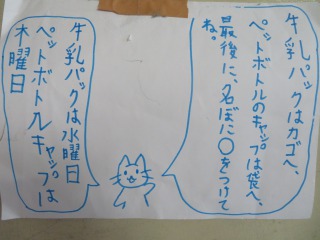 牛乳パックはカゴへ、
ペットボトルのキャップは袋へ、
最後に、名ぼに〇をつけて
ね。
牛乳パックは水曜日
ペットボトルキャップは
木曜日